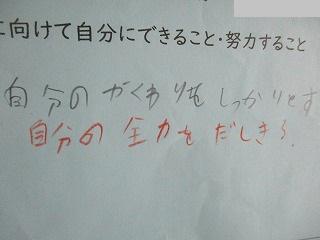 に向けて自分にできること・努力すること
自分のやくわりをしっかりとす
自分の全力をだしきろ.